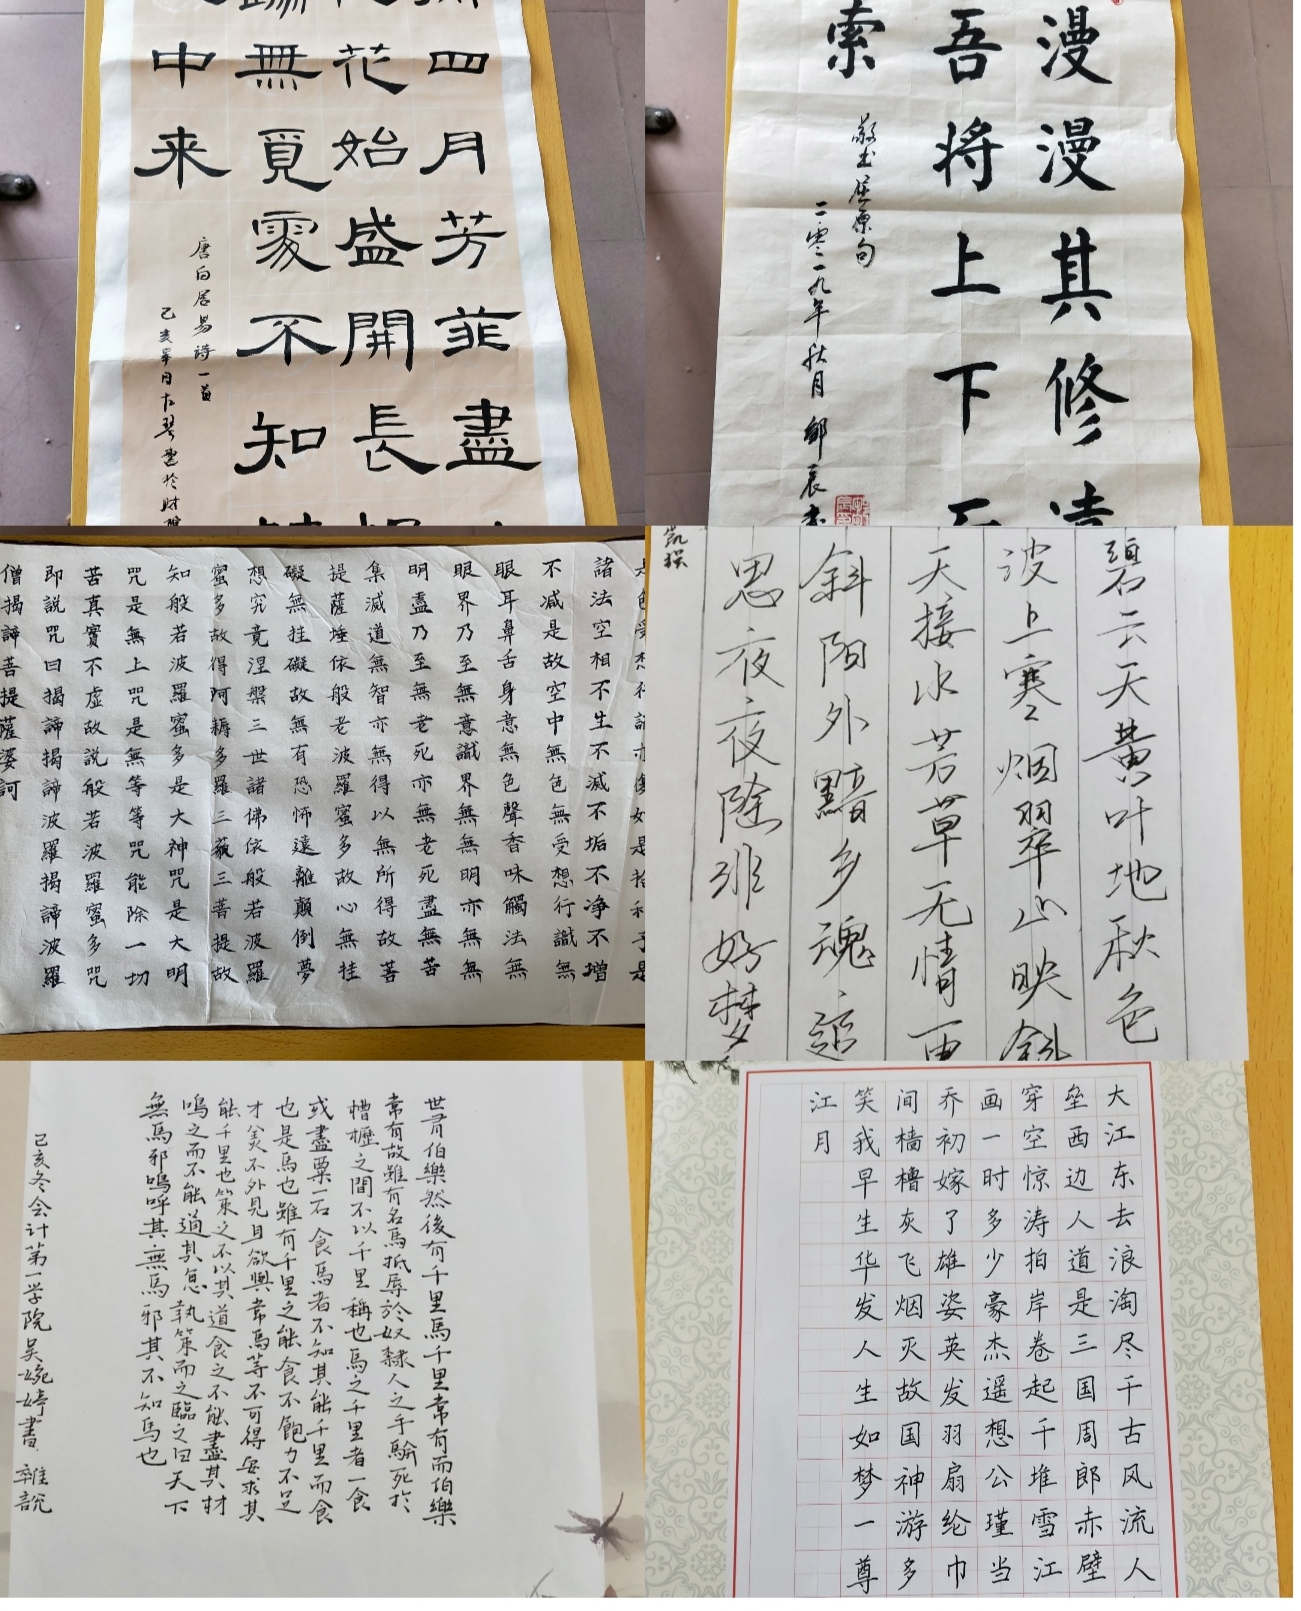 四月芳菲盡
花始盛開長
無覓處不知
中来
唐白居易诗一首
漫漫其修
吾将上下
索
敬书屈原句
二零一九年秋月 邹辰书
諸法空相不生不滅不垢不净不增
不减是故空中無色無受想行識無
眼耳鼻舌身意無色聲香味觸法無
眼界乃至無意識界無無明亦無無
明盡乃至無老死亦無老死盡無苦
集滅道無智亦無得以無所得故菩
提薩埵依般老波羅蜜多故心無挂
礙無挂礙故無有恐怖遠離顛倒夢
想究竟涅槃三世諸佛依般若波羅
蜜多故得阿耨多羅三藐三菩提故
知般若波羅蜜多是大神咒是大明
咒是無上咒是無等等咒能除一切
苦真實不虛故説般若波羅蜜多咒
即説咒曰揭諦揭諦波羅揭諦波羅
僧揭諦菩提薩婆訶
碧云天黄叶地秋色
波上寒烟翠山映斜
天接水芳草无情更
斜阳外黯乡魂追
思夜夜除非好梦
世有伯樂然後有千里馬千里常有而伯樂
常有故雖有名馬祇辱於奴隸人之手駢死於
槽櫪之間不以千里稱也馬之千里者一食
或盡粟一石食馬者不知其能千里而食
也是馬也雖有千里之能食不飽力不足
才美不外見且欲與常馬等不可得安求其
能千里也策之不以其道食之不能盡其材
鳴之而不能通其意執策而之臨之曰天下
無馬邪嗚呼其無馬邪其不知馬也
己亥冬会计第一学院吴婉婷書 雜説
大江东去浪淘尽千古风流人
垒西边人道是三国周郎赤壁
穿空惊涛拍岸卷起千堆雪江
画一时多少豪杰遥想公瑾当
乔初嫁了雄姿英发羽扇纶巾
间樯橹灰飞烟灭故国神游多
笑我早生华发人生如梦一尊
江月